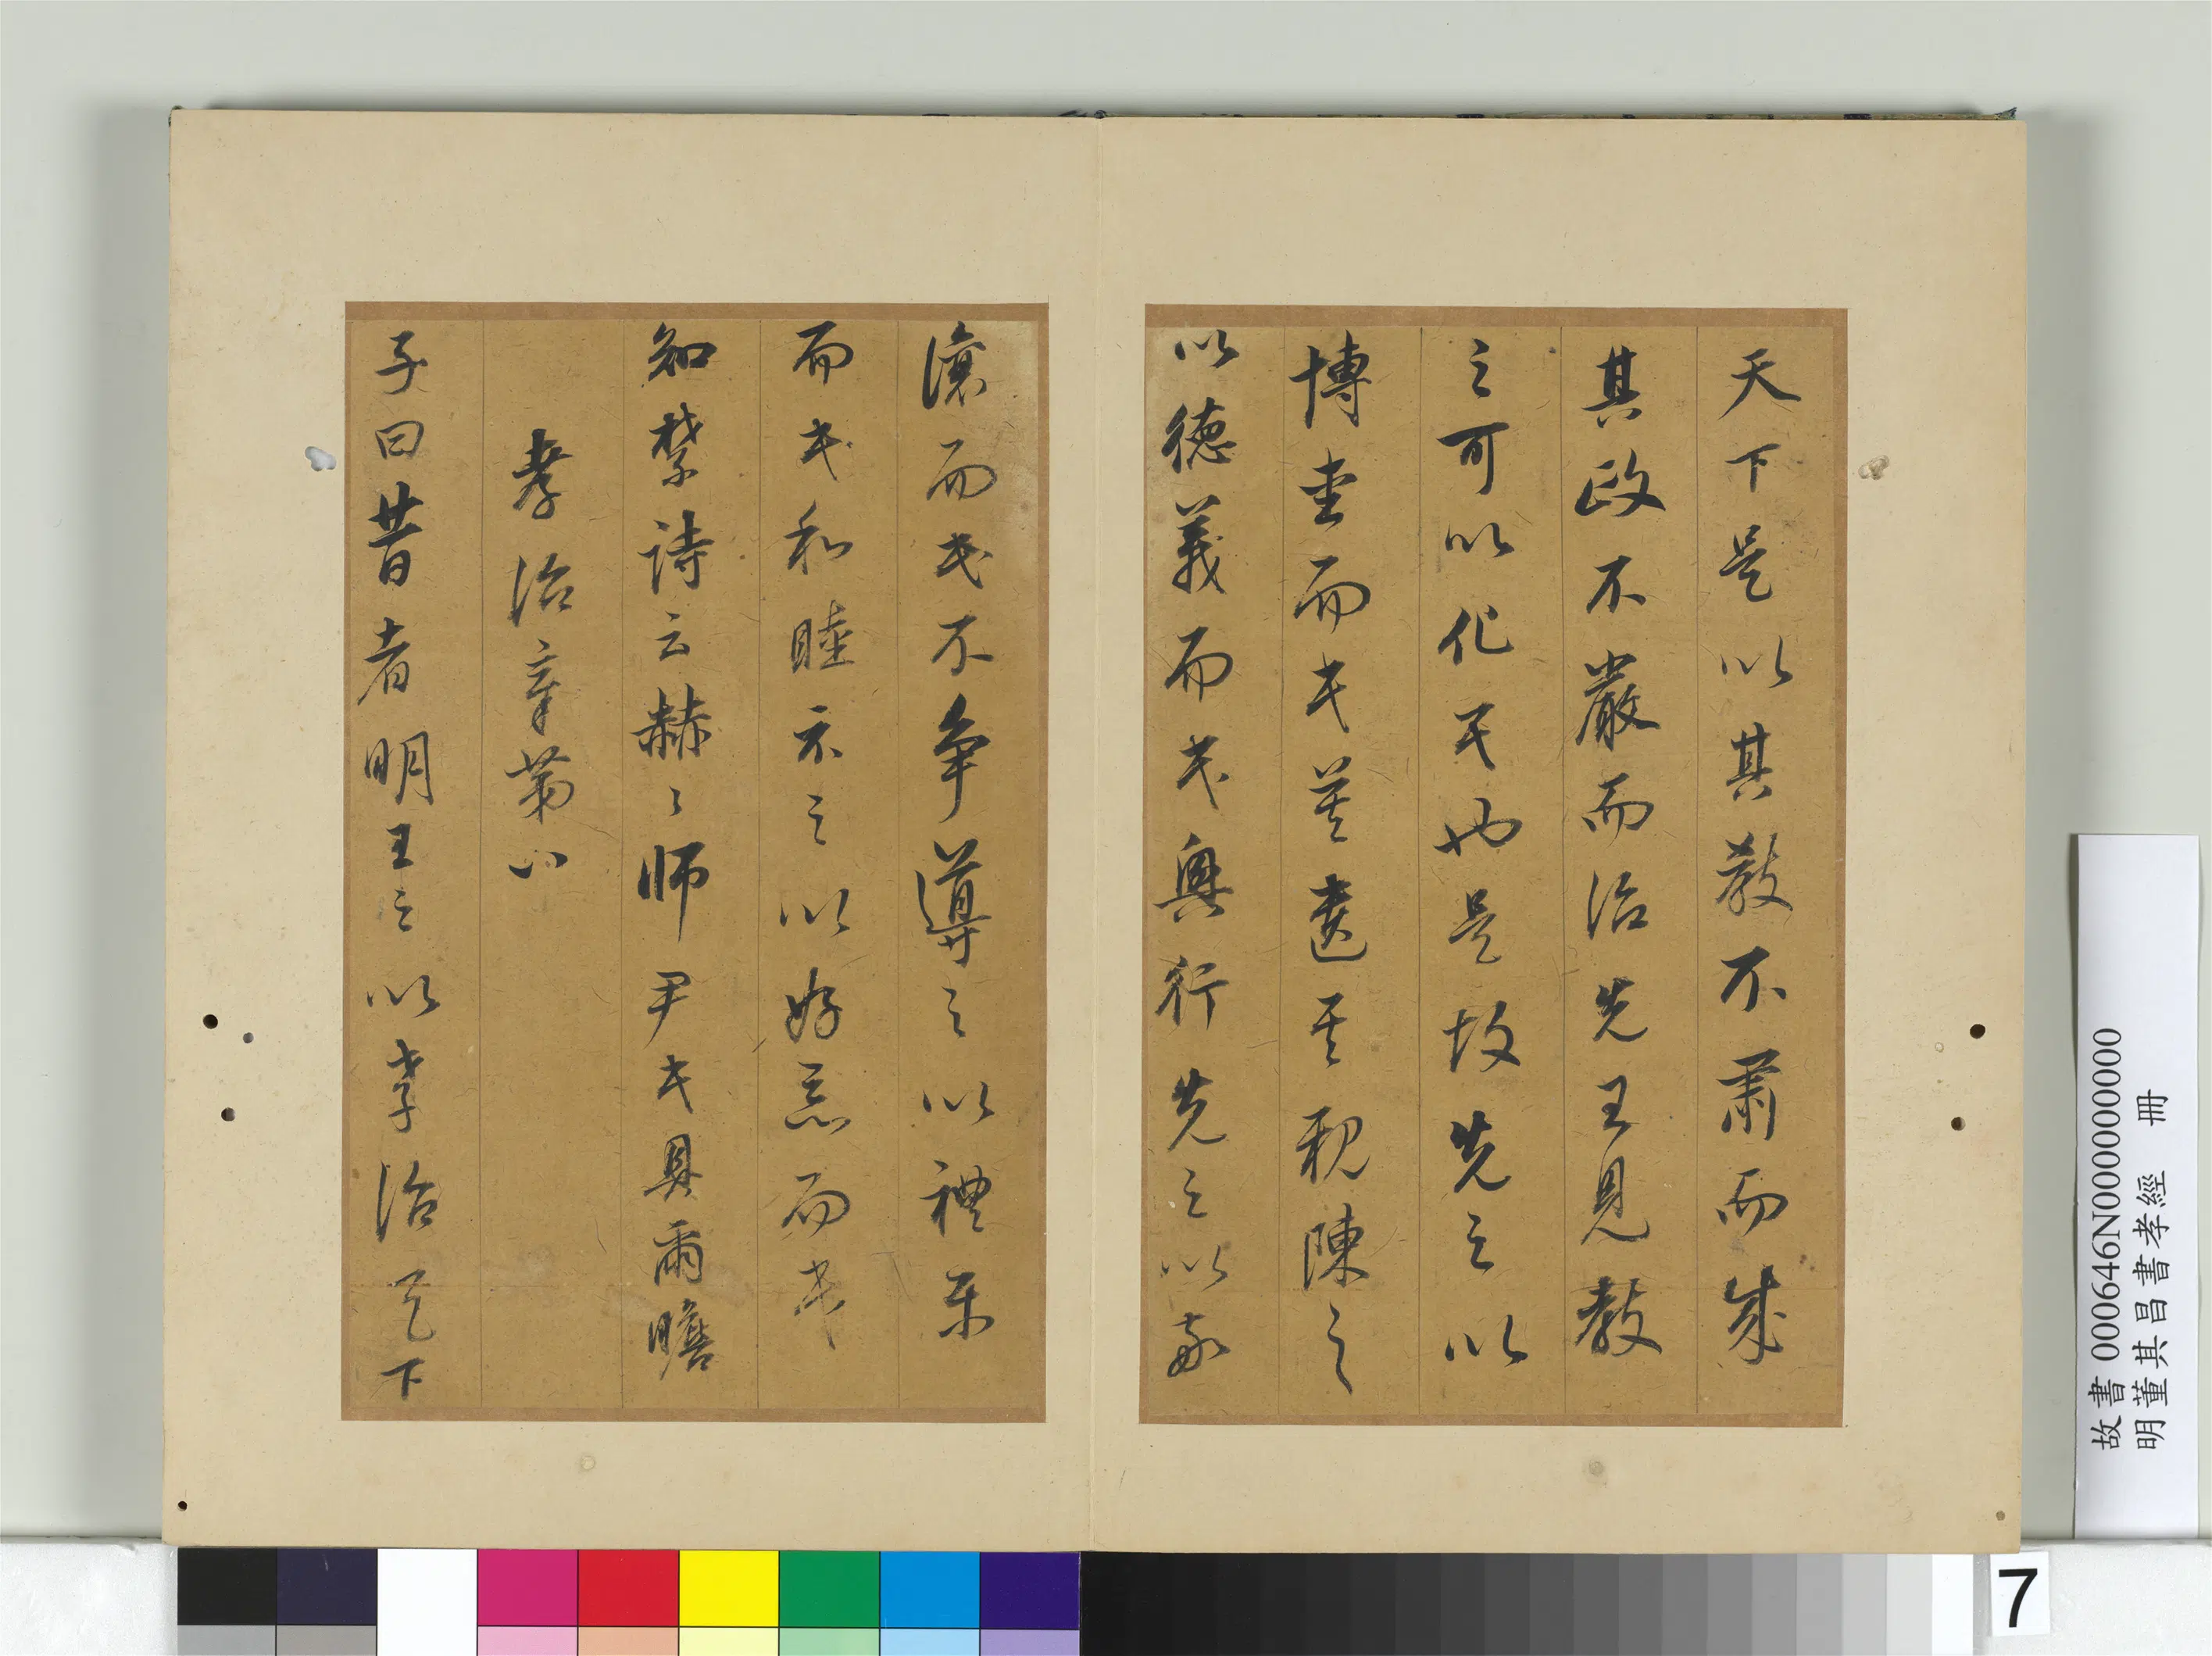 天下是以其教不肅而成
其政不嚴而治先王見教
之可以化民也是故先之以
博愛而民莫遺其親陳之
以德義而民興行先之以敬
讓而民不爭導之以禮樂
而民和睦示之以好惡而民
知禁詩云赫〻師尹民具爾瞻
孝治章第八
子曰昔者明王之以孝治天下
故書 000646N000000000
明董其昌書孝經 冊
7